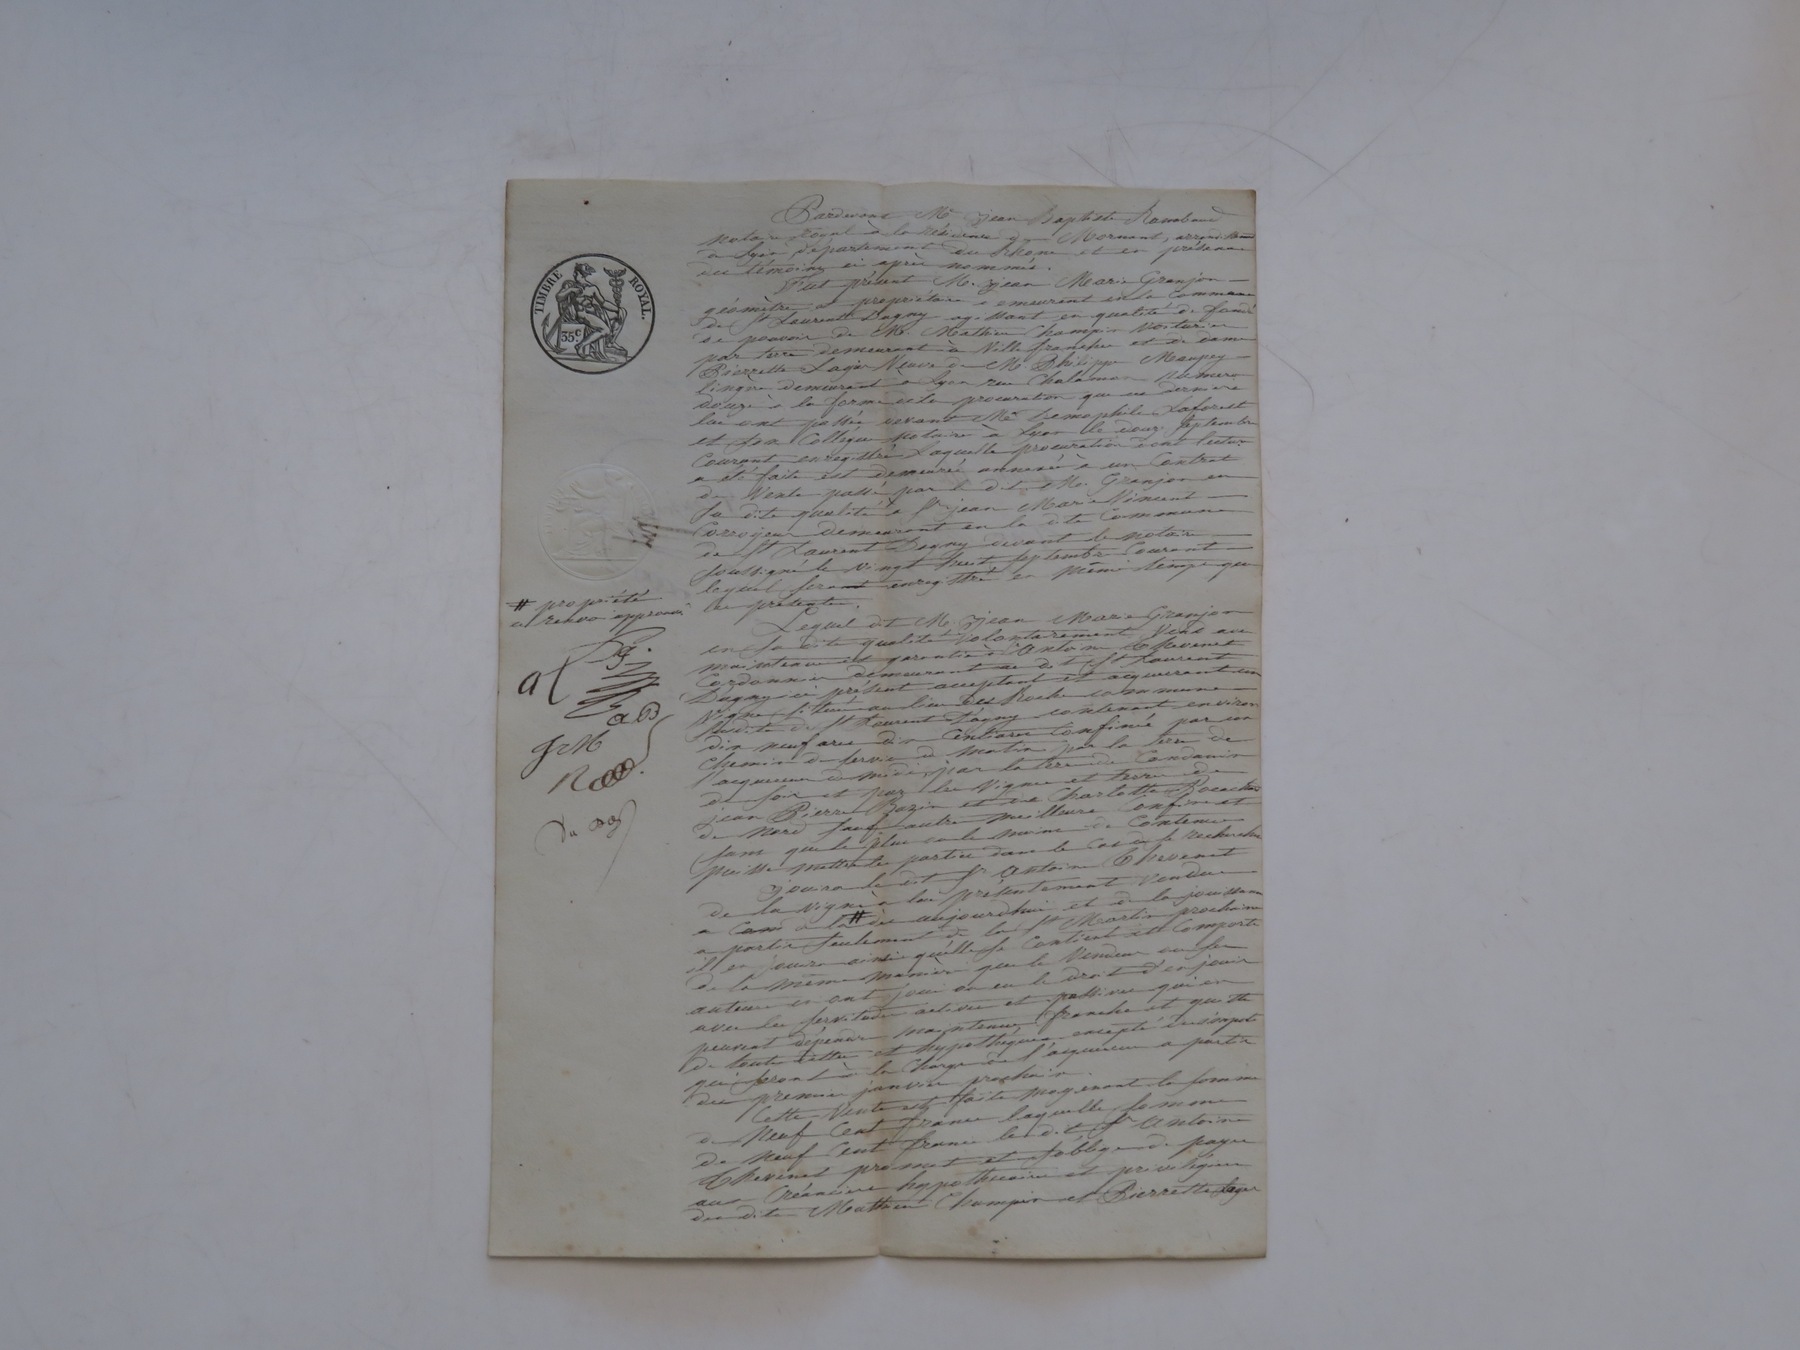 TIMBRE ROYAL.
35c.
Pardevant Me jean Baptiste Rambaud
Notaire Royal à la résidence de Mornant, arrond.
de Lyon département du Rhône et en présence
des témoins ci après nommés.
Fut présent M. jean Marie Granjon
géomètre et propriétaire demeurant en la commune
de St Laurent Dagny agissant en qualité de fondé
de pouvoir de M. Mathieu Champin Voiturier
par terre demeurant à Ville franche et de dame
Pierrette Lager Veuve de M. Philippe Maupey
lingère demeurant à Lyon rue Chalamon numéro
douze à la forme de la procuration que ces derniers
lui ont passée devant Me Démophile Laforest
et son Collègue Notaire à Lyon le douze Septembre
Courant enregistrée Laquelle procuration dont lecture
a été faite est demeurée annexée à un Contrat
de Vente passé par le dit M. Granjon en
sa dite qualité à Sr jean Marie Vincent
Corroyeur demeurant en la dite Commune
de St Laurent Dagny devant le notaire
soussigné le vingt huit Septembre Courant
lequel sera enregistré en même temps que
les présentes.
# propriété
renvoi approuvé
Lequel dit M. jean Marie Granjon
en sa dite qualité volontairement Vend avec
maintenue et garantie à Antoine Chevenet
Cordonnier demeurant au dit St Laurent
Dagny ici présent acceptant et acquérant une
Vigne située au lieu des Roche commune
susdite de St Laurent Dagny contenant environ
dix neuf ares dix Centiares confinée par un
Chemin de service de matin par la terre de
l'acquéreur de midi, par la terre de
de soir et par les Vignes et terre de
jean Pierre Bazin et de Charlotte
de Nord sauf autre meilleure Confins et
sans que le plus ou le moins de Contenue
puisse mettre les parties dans le Cas de se rechercher
jouira le dit Sr Antoine Chevenet
de la vigne à lui présentement Vendue
à la # dès aujourdhui et de la jouissance
à partir seulement de la St Martin prochaine
il en jouira ainsi qu'elle se Contient et Comporte
de la même manière que le Vendeur ou ses
auteurs en ont joui ou eu le droit d'en jouir
avec les servitudes actives et passives qui en
peuvent dépendre maintenue franche et quitte
de toute dette et hypothèque excepté des impots
qui seront à la Charge de l'acquéreur à partir
du premier janvier prochain.
Cette Vente est faite moyenant la somme
de Neuf Cent francs laquelle somme
de Neuf Cent francs le dit Sr Antoine
Chevenet promet et s'oblige de payer
aux Créanciers hypothécaires et privilégiés
des dits Mathieu Champin et Pierrette Lager